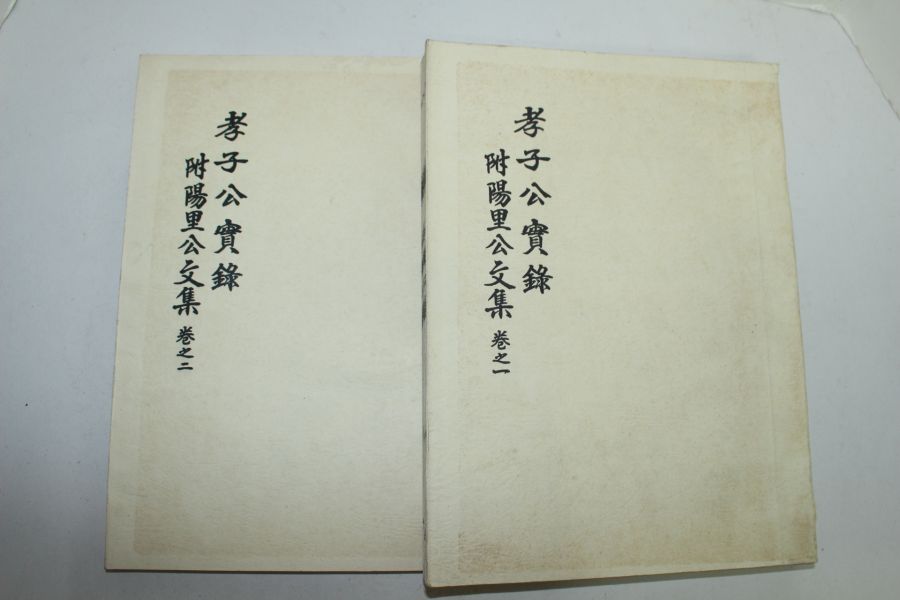 孝子公實錄
附陽里公文集 卷之一
孝子公實錄
附陽里公文集 卷之二